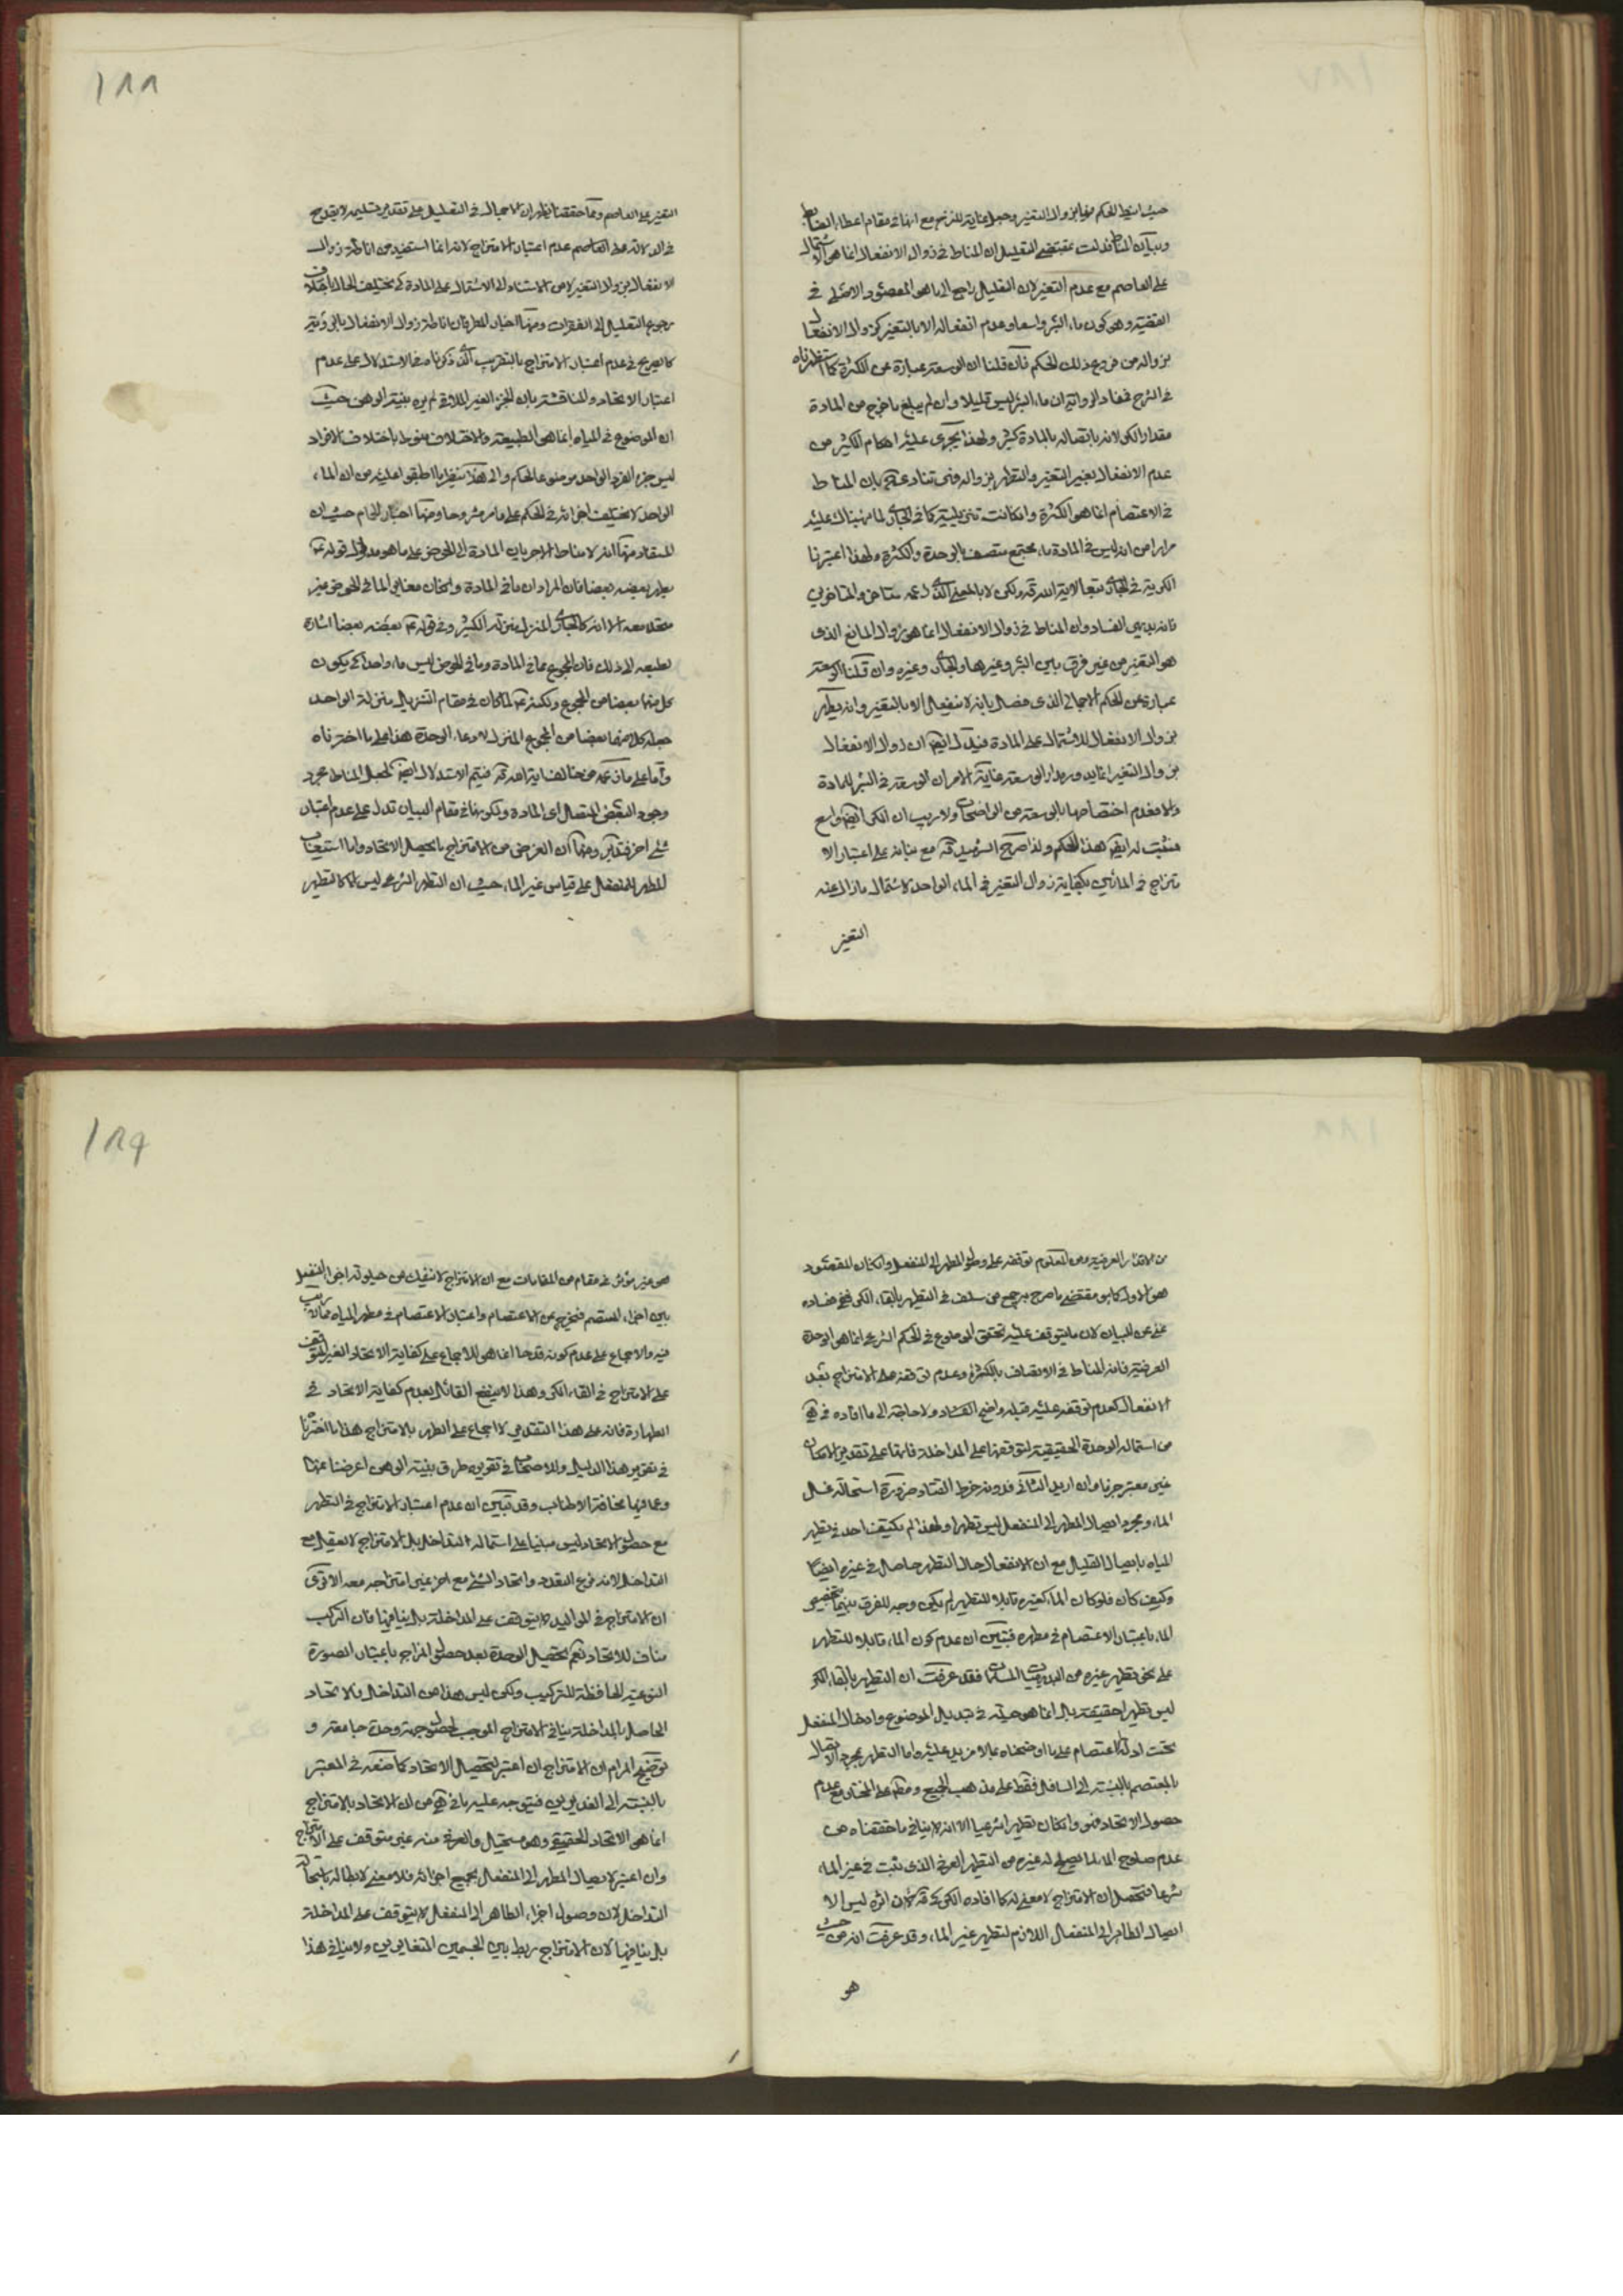 حيث انيط الحكم فيها بزوال التغير وجعل غاية للنزح مع انها في مقام اعطاء الضابط
وبيان المناط فدلت بمقتضى التعليل ان المناط في زوال الانفعال انما هو الاشتمال
على العاصم مع عدم التغير لان التعليل راجع الى ما هو المقصود الاصلي في
القضية وهو كون ماء البئر واسعا وعدم انفعاله الا بالتغير كزوال الانفعال
بزواله من فروع ذلك الحكم فان قلنا ان الوسعة عبارة عن الكثرة كما استظهرناه
في الشرح فمفاد الرواية ان ماء البئر ليس قليلا وان لم يبلغ ما خرج من المادة
مقدار الكر لانه باتصاله بالمادة كثير ولهذا يجرى عليه احكام الكثير من
عدم الانفعال بغير التغير والتطهر بزواله فهى تنادى بان المناط
في الاعتصام انما هو الكثرة وان كانت تنزيلية كما في الجارى لما نبهناك عليه
مرارا من انه ليس في المادة ماء مجتمع متصف بالوحدة والكثرة ولهذا اعتبرنا
الكرية في الجارى تبعا لاية الله قده لكن لا بالمعنى الذى
فانه بديهى الفساد وان المناط في زوال الانفعال انما هو زوال المانع الذى
هو التغير من غير فرق بين البئر وغيرها والجارى وغيره وان قلنا الوسعة
عبارة عن الحكم الاجمالي الذى فصل بانه لا ينفعل الا بالتغير وانه يطهر
بزوال الانفعال للاشتمال على المادة فيدل ايضا ان زوال الانفعال
بزوال التغير انما يدور مدار الوسعة غاية الامر ان الوسعة في البئر للمادة
والا فعدم اختصاصها بالوسعة من الواضحات ولا ريب ان الكر ايضا واسع
فيثبت له ايضا هذا الحكم ولذا صرح الشهيد قده مع بنائه على اعتبار الا
متزاج في المائين بكفاية زوال التغير في الماء الواحد لاشتمال ما زال عنه
التغير
١٨٨
التغير على العاصم ومما حققنا يظهر ان الاجمال في التعليل على تقدير تسليمه لا يقدح
في الدلالة على العاصم عدم اعتبار الامتزاج لانه انما استفيد من اناطة زوال
الانفعال بزوال التغير لا من الاستناد الى الاشتمال على المادة كى يختلف الحال باختلاف
رجوع التعليل الى الفقرات ومنها اخبار المطر فان اناطة زوال الانفعال بالرؤية
كالصريح في عدم اعتبار الامتزاج بالتقريب الذى ذكرناه في الاستدلال على عدم
اعتبار الاتحاد والمناقشة بان الجزء الغير الملاقى لم يره بينة الوهن حيث
ان الموضوع في المياه انما هو الطبيعة والاختلاف منوط باختلاف الافراد
ليس جزء الفرد الواحد موضوعا للحكم والى هذا ينظر ما اطبقوا عليه من ان الماء
الواحد لا يختلف اجزائه في الحكم على ما مر مشروحا ومنها اخبار الحمام حيث ان
المستفاد منها انه لا مناط الا جريان المادة الى الحوض على ما هو مدلول قوله ع
يطهر بعضه بعضا فان المراد ان ما في المادة وان كان مغايرا لما في الحوض غير
متحد معه الا انه كالجارى المنزل منزلة الكثير وفي قوله ع بعضه بعضا اشارة
لطيفة الى ذلك فان المجموع مما في المادة وما في الحوض ليس ماء واحدا كى يكون
كل منهما بعضا من المجموع ولكنه ع لما كان في مقام التنزيل منزلة الواحد
جعل كلا منهما بعضا من المجموع المنزل لادعاء الوحدة هذا على ما اخترناه
واما على ما فيتم الاستدلال ايضا لجعل المناط مجرد
وجود البعض المتصل اى المادة وكونها في مقام البيان تدل على عدم اعتبار
شىء اخر فتدبر ومنها ان الغرض من الامتزاج اما تحصيل الاتحاد واما استيعاب
المطهر للمنفعل على قياس غير الماء حيث ان التطهر الشرعى ليس الا كالتطهر
من الاقذار العرفية ومن المعلوم توقفه على وصول المطهر الى المنفعل وان كان المقصود
هو الاول كما هو مقتضى ما صرح به جمع ممن سلف في التطهر بالقاء الكر فمن فساده
غنى عن البيان لان ما يتوقف عليه تحقق الموضوع في الحكم الشرعى انما هو الوحدة
العرفية فانه المناط في الاتصاف بالكثرة وعدم توقفه على الامتزاج بعد
الانفعال كعدم توقفه عليه قبله واضح الفساد ولا حاجة الى ما افاده في
من استحالة الوحدة الحقيقية لتوقفها على المداخلة فانها على تقدير الامكان
غير معتبر جزما وان اريد الثاني فدونه خرط القتاد ضرورة استحالة غسل
الماء ومجرد ايصال المطهر الى المنفعل ليس تطهيرا ولهذا لم يكتف احد في تطهير
المياه بايصال القليل مع ان الانفعال حال التطهر حاصل في غيره ايضا
وكيف كان فلو كان الماء كغيره قابلا للتطهر لم يكن وجه للفرق بينهما بتخصيص
الماء باعتبار الاعتصام في مطهره فتبين ان عدم كون الماء قابلا للتطهر
على نحو تطهر غيره من البديهيات المسلمات فقد عرفت ان التطهر بالقاء الكر
ليس تطهيرا حقيقة بل انما هو حيلة في تبديل الموضوع وادخال المنفعل
تحت ادلة الاعتصام على ما اوضحناه بما لا مزيد عليه واما التطهر بمجرد الاتصال
بالمعتصم بالنسبة الى السافل فقط على مذهب الجميع ومطلقا على المختار مع عدم
حصول الاتحاد فهو وان كان تطهيرا شرعيا الا انه لا ينافى ما حققناه من
عدم صلوح الماء لما يصلح له غيره من التطهر العرفى الذى يثبت في غير الماء
شرعا فتحصل ان الامتزاج لا معنى له كما افاده الكركى قده لان اثره ليس الا
ايصال الطاهر الى المنفعل اللازم لتطهير غير الماء وقد عرفت انه من حيث
هو
١٨٩
هو غير مؤثر في مقام من المقامات مع ان الامتزاج لا ينفك عن حيلولة اجزاء المنفعل
بين اجزاء المعتصم فيخرج عن الاعتصام واعتبار الاعتصام في مطهر المياه مما لا ريب
فيه والاجماع على عدم كونه قدحا انما هو للاجماع على كفاية الاتحاد الغير المتوقف
على الامتزاج في القاء الكر وهذا لا ينفع القائل بعدم كفاية الاتحاد في
الطهارة فانه على هذا التقدير لا اجماع على الطهر بالامتزاج هذا ما اخترنا
في تقرير هذا الدليل وللاصحاب في تقريره طرق بينة الوهن اعرضنا عنها
وعما فيها مخافة الاطناب وقد تبين ان عدم اعتبار الامتزاج في التطهر
مع حصول الاتحاد ليس مبنيا على استحالة التداخل بل الامتزاج لا يعقل مع
التداخل لانه فرع التعدد واتحاد الشىء مع اخر غير امتزاجه معه الا ترى
ان الامتزاج في المواليد لا يتوقف على المداخلة بل ينافيها فان التركب
مناف للاتحاد نعم تحصل الوحدة بعد حصول المزاج باعتبار الصورة
النوعية الحافظة للتركيب ولكن ليس هذا من التداخل فالاتحاد
الحاصل بالمداخلة ينافى الامتزاج الموجب لحصول جهة وحدة جامعة و
توضيح المرام ان الامتزاج ان اعتبر لتحصيل الاتحاد كما صنعه في المعتبر
بالنسبة الى الغديرين فيتوجه عليه ما في من ان الاتحاد بالامتزاج
انما هو الاتحاد الحقيقى وهو مستحيل والعرفى منه غير متوقف على الامتزاج
وان اعتبر لايصال المطهر الى المنفعل بجميع اجزائه فلا معنى لابطاله باستحالة
التداخل لان وصول اجزاء الطاهر الى المنفعل لا يتوقف على المداخلة
بل ينافيها لان الامتزاج ربط بين الجسمين المتغايرين ولا ينافى هذا